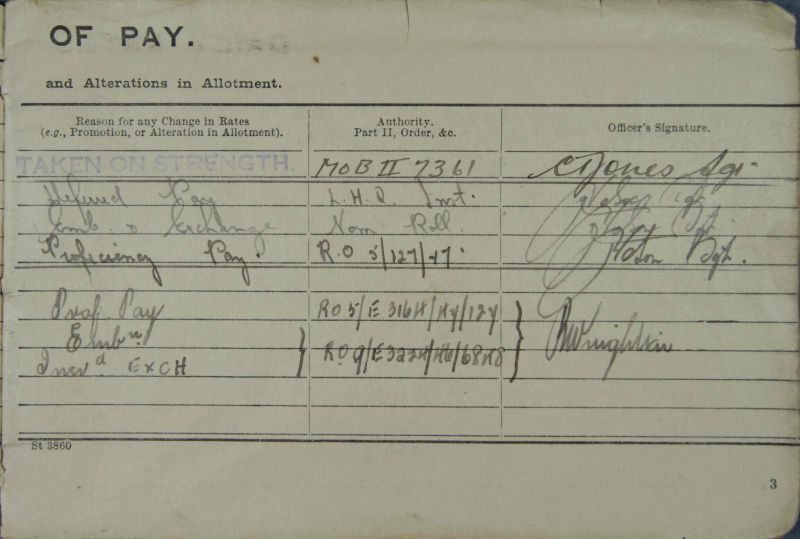 OF PAY.
and Alterations in Allotment.
Reason for any Change in Rates
(e.g., Promotion, or Alteration in Allotment).
Authority.
Part II, Order, &c.
Officer's Signature.
TAKEN ON STRENGTH. MOB II 7361 Jones Sgt.
Deferred Pay L.H.Q. Inst.
Emb. & Exchange Nom Roll.
Proficiency Pay. R.O 5/127/47. Sgt.
Prof. Pay RO 5/E 316H/44/124
Embn
Incrd EXCH RO 9/E322H/46/6848
St 3860
3